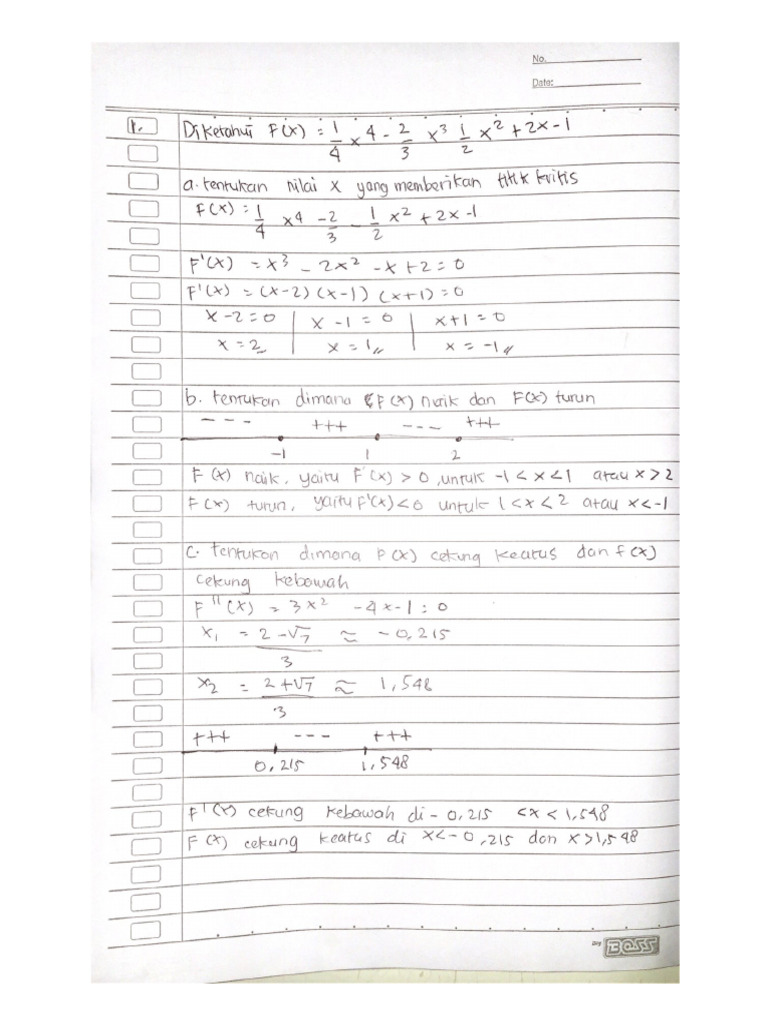 No.
Date:
1. Diketahui F(x) = 1/4 x 4 - 2/3 x³ 1/2 x² + 2x - 1
a. tentukan nilai x yang memberikan titik kritis
F(x) = 1/4 x4 - 2/3 - 1/2 x² + 2x - 1
F'(x) = x³ - 2x² - x + 2 = 0
F'(x) = (x-2) (x-1) (x+1) = 0
x - 2 = 0 | x - 1 = 0 | x + 1 = 0
x = 2 | x = 1 | x = -1
b. tentukan dimana F(x) naik dan F(x) turun
--- +++ --- +++
-1 1 2
F(x) naik, yaitu F'(x) > 0, untuk -1 < x < 1 atau x > 2
F(x) turun, yaitu F'(x) < 0 untuk 1 < x < 2 atau x < -1
c. tentukan dimana F(x) cekung keatas dan f(x)
cekung kebawah
F"(x) = 3x² - 4x - 1 = 0
x₁ = 2 - √7 / 3 ≈ - 0,215
x₂ = 2 + √7 / 3 ≈ 1,548
+++ --- +++
0,215 1,548
F'(x) cekung kebawah di - 0,215 < x < 1,548
F(x) cekung keatas di x < - 0,215 dan x > 1,548
BOSS